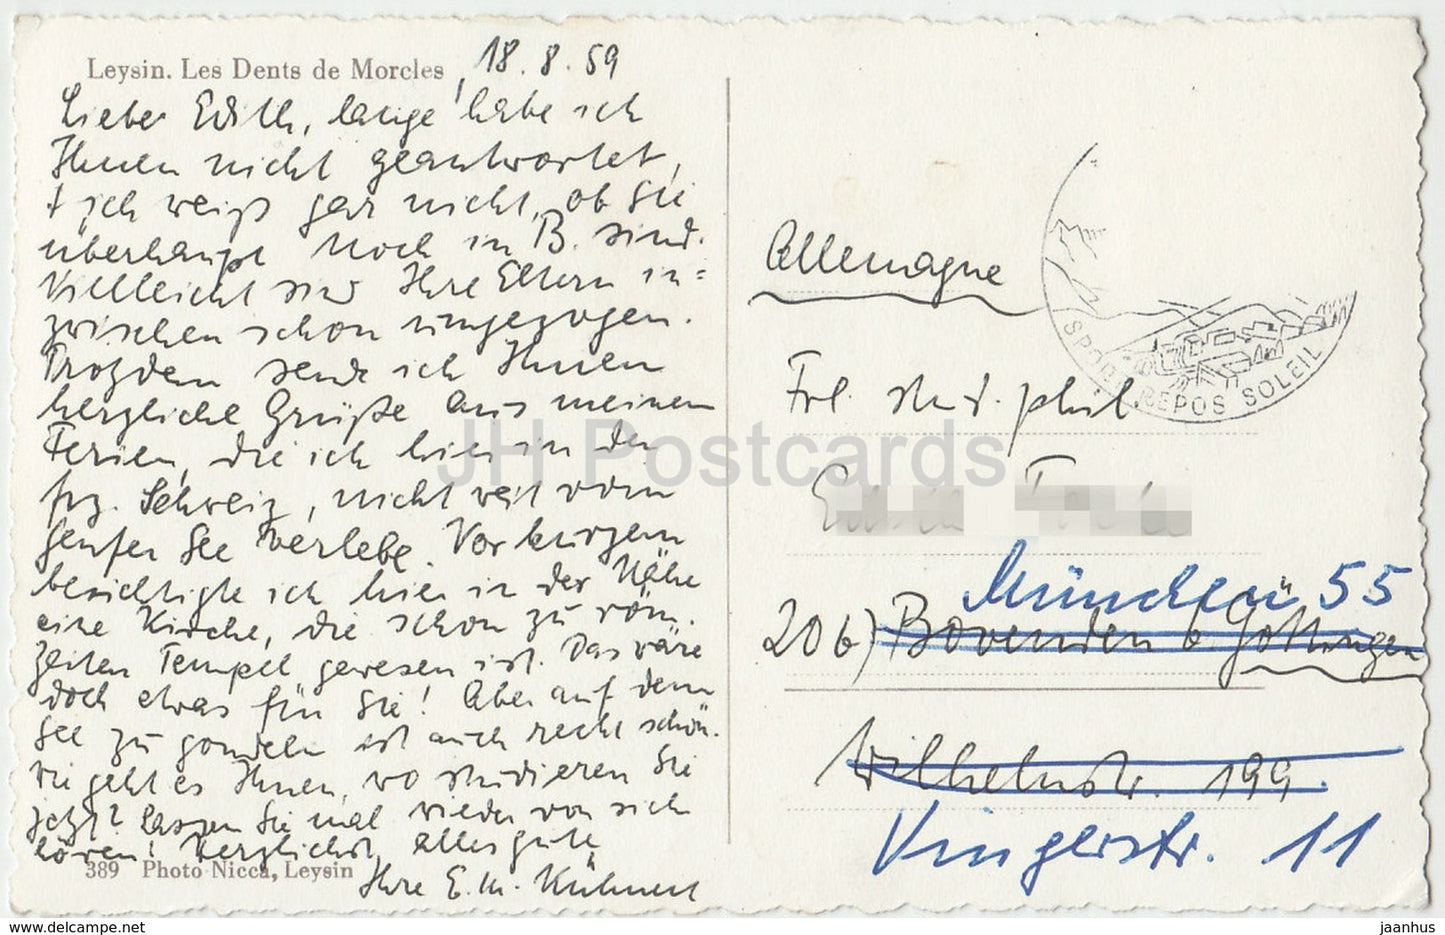 Leysin. Les Dents de Morcles
18.8.59
Lieber Edith, lange habe ich
Ihnen nicht geantwortet,
+ ich weiß gar nicht, ob Sie
überhaupt noch in B. sind.
Vielleicht sind Ihre Eltern in=
zwischen schon umgezogen.
Trozdem sende ich Ihnen
herzliche Grüße aus meinen
Ferien, die ich hier in der
frz. Schweiz, nicht weit vom
Genfer See verlebe. Vor kurzem
besichtigte ich hier in der Nähe
eine Kirche, die schon zu röm.
Zeiten Tempel gewesen ist. Das wäre
doch etwas für Sie! Aber auf dem
See zu gondeln ist auch recht schön.
Wie geht es Ihnen, wo studieren Sie
jetzt? Lassen Sie mal wieder von sich
hören! Herzlichst, alles gute
Ihre E. M. Kühnert
389 Photo Nicca, Leysin
Allemagne
SPORT REPOS SOLEIL
Frl. stud. phil
München 55
20b) Bovenden b. Göttingen
Wilhelmstr. 199.
Vingerstr. 11
JH Postcards
delcampe.net
jaanhus